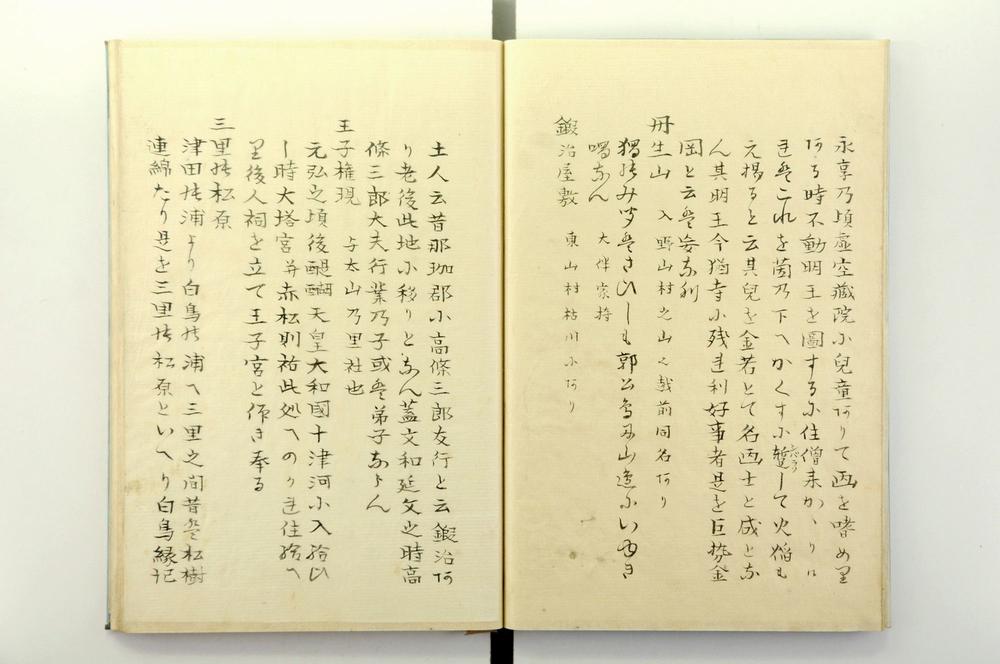 永享乃頃虚空蔵院小兒童阿りて画を嗜め里
阿る時不動明王を圖する尓住僧来かゝり
連盤これを茵乃下へかくす尓蹔して火焔も
元揚ると云其兒を金若とて名画士と成とな
ん其明王今猶寺小残連利好事者是を巨勢金
岡と云盤安奈利
丹生山 入野山村之山也越前同名阿り
独のみゆ盤さひしも郭公鳥丹山邊尓い由き
鳴なん 大伴家持
鍛治屋敷 東山村枯川小阿り
土人云昔那珈郡小高條三郎友行と云鍛治阿
り老後此地小移りとなん蓋文和延文之時高
條三郎大夫行業乃子或盤弟子奈らん
王子権現 与太山乃里社也
元弘之頃後醍醐天皇大和國十津河小入給ひ
し時大塔宮并赤松則祐此処へのか連住給へ
里後人祠を立て王子宮と作き奉る
三里の松原
津田の浦より白鳥の浦へ三里之間昔盤松樹
連綿たり是を三里の松原といへり白鳥縁記